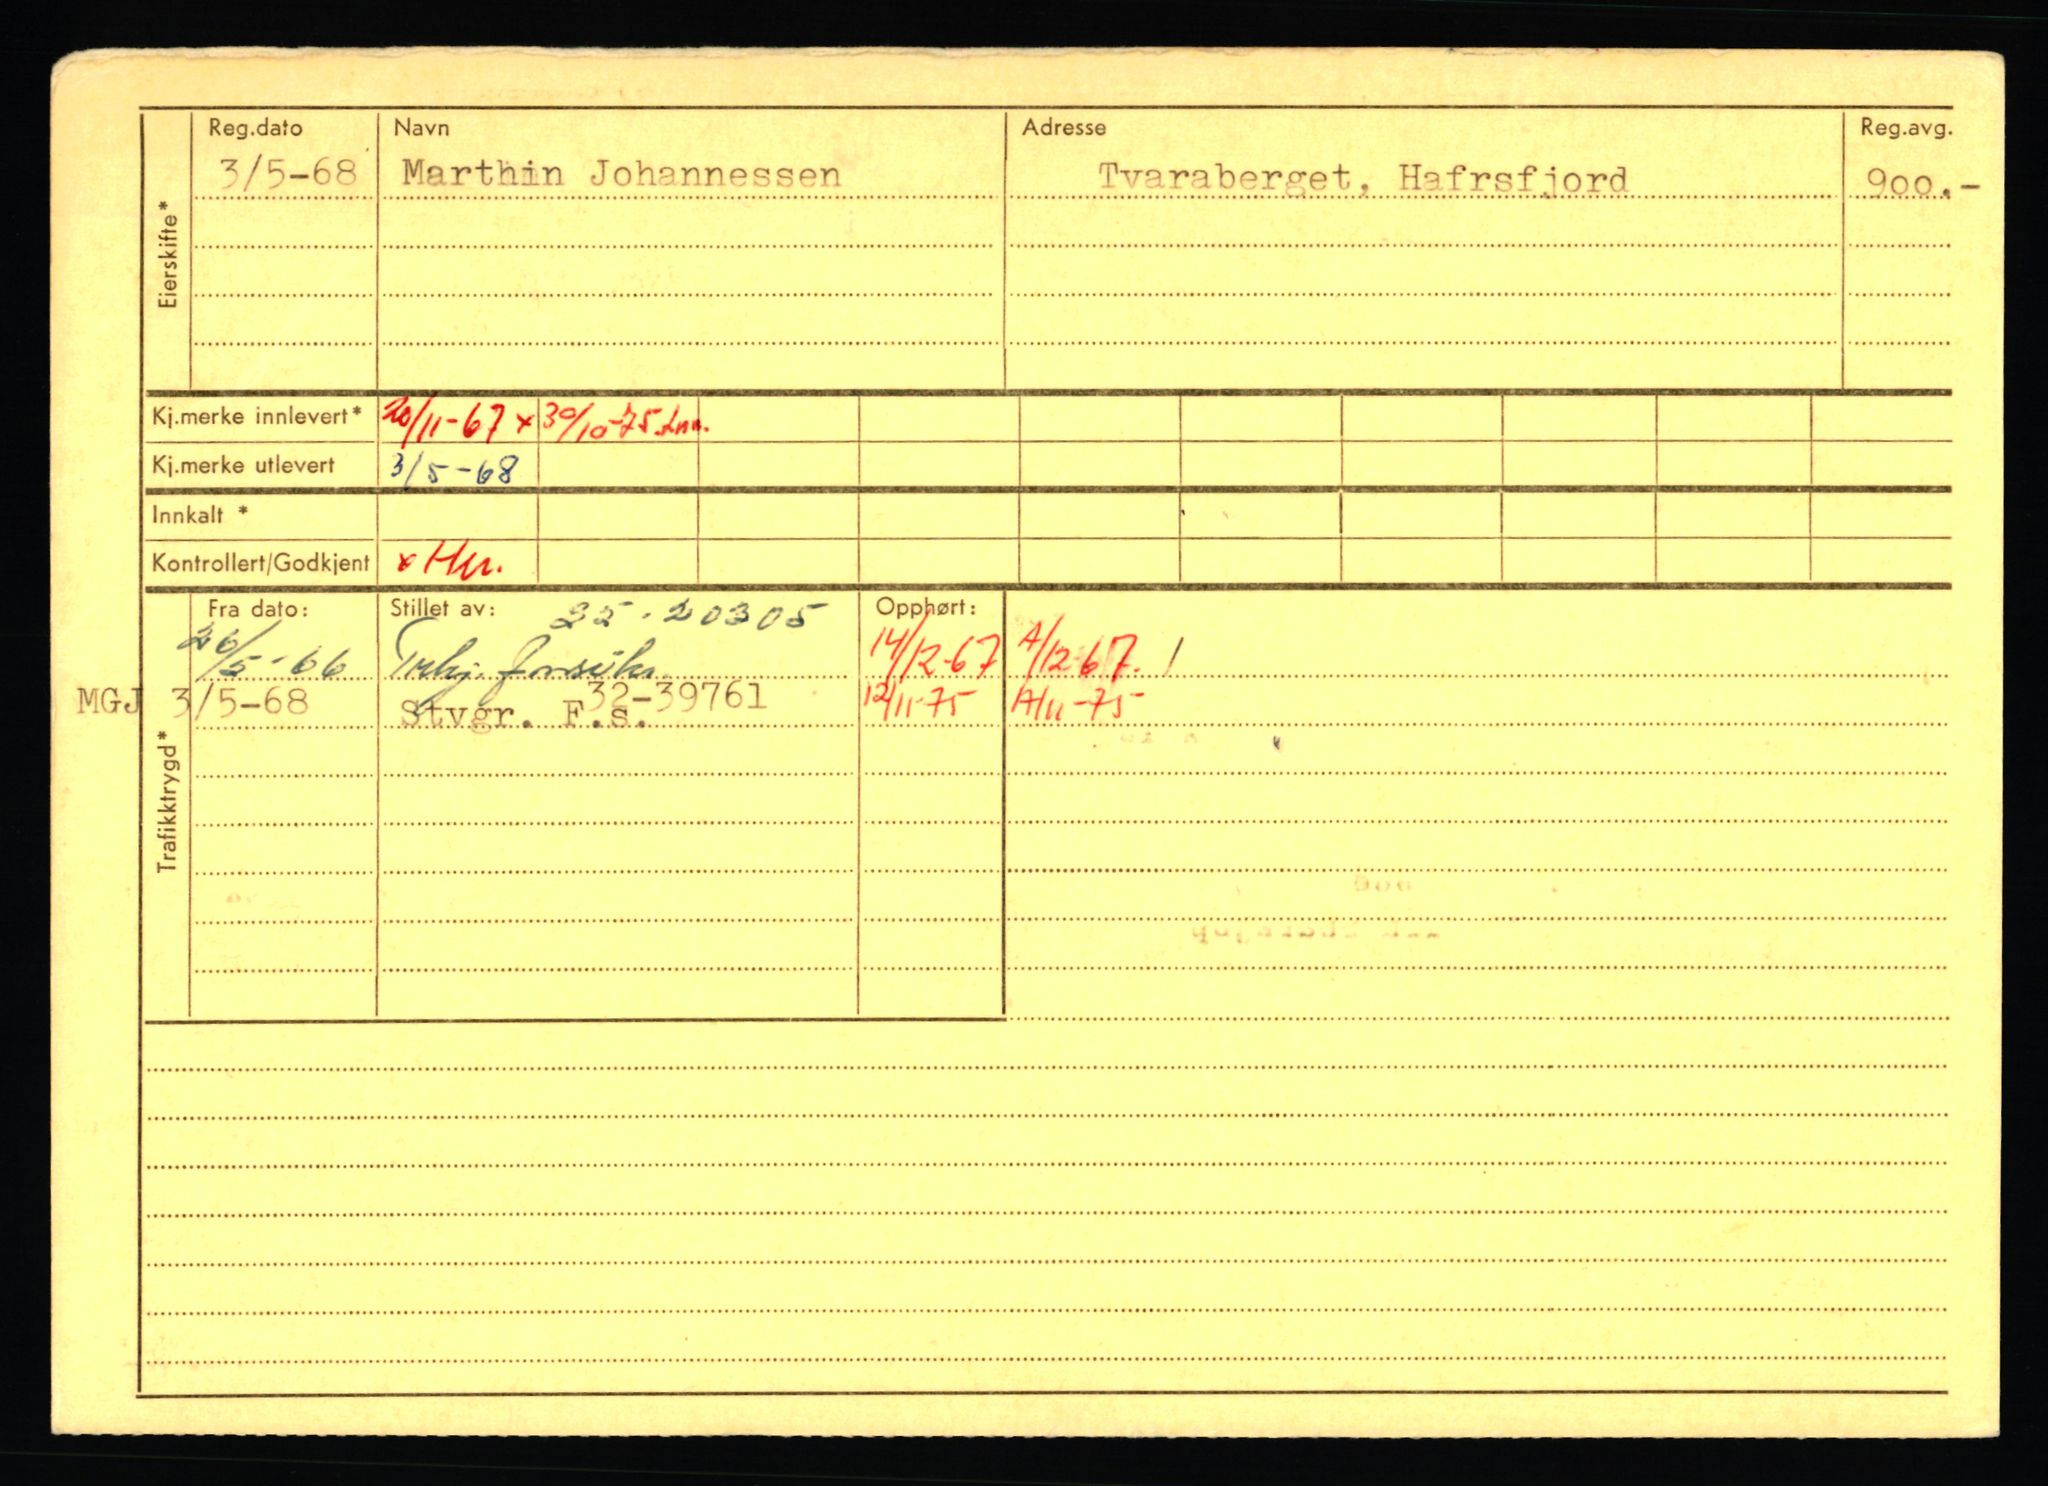 Eierskifte*
Reg.dato Navn Adresse Reg.avg.
3/5-68 Marthin Johannessen Tvaraberget, Hafrsfjord 900.-
Kj.merke innlevert* 20/11-67 x 30/10-75
Kj.merke utlevert 3/5-68
Innkalt *
Kontrollert/Godkjent x
Trafikktrygd*
Fra dato: Stillet av: 25-20305 Opphørt:
26/5-66 14/12-67 A/12-67.
MGJ 3/5-68 Stvgr. F.s. 32-39761 12/11-75 A/11-75